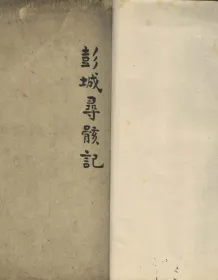 彭城尋骸記